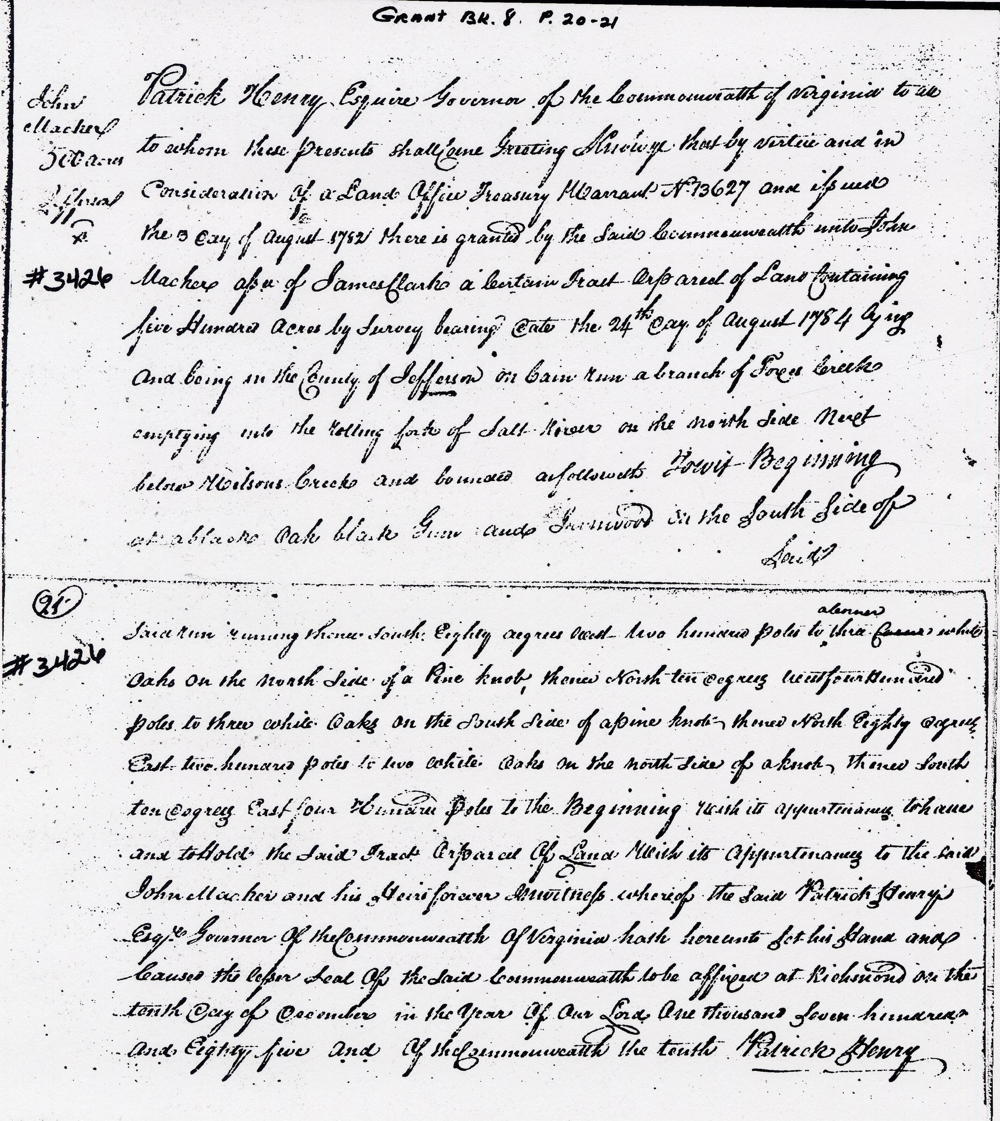 GRANT BK. 8. P. 20-21
John
Mackey
500 acres
Jefferson
#3426
Patrick Henry Esquire Governor of the Commonwealth of Virginia to all
to whom these presents shall come Greeting Know ye that by virtue and in
Consideration of a Land Office Treasury Warrant No 13627 and issued
the 3 day of August 1782 there is granted by the said Commonwealth unto John
Mackey assee of James Clark a Certain Tract or parcel of Land Containing
five Hundred Acres by Survey bearing date the 24th day of August 1784 lying
and being in the County of Jefferson on Cain run a branch of Creek
emptying into the rolling fork of Salt River on the north side Next
below Wilsons Creek and bounded as followeth Towit Beginning
at a black Oak black Gum and Ironwood on the South side of
said
21
#3426
said run runing thence South Eighty degrees West two hundred poles to three white
Oaks on the north side of a Pine knob, thence North ten degrees West four Hundred
poles to three white Oaks on the South side of a pine knob thence North Eighty degrees
East two hundred poles to two white Oaks on the north side of a knob, thence South
ten degrees East four Hundred Poles to the Beginning With its appurtenances to have
and to Hold the said Tract or parcel Of Land With its Appurtenances to the said
John Mackey and his Heirs forever In witness whereof the said Patrick Henry
Esqr Governor Of the Commonwealth Of Virginia hath hereunto set his Hand and
Caused the lesser Seal Of the said Commonwealth to be affixed at Richmond on the
tenth day of December in the year Of Our Lord One thousand Seven hundred
and Eighty five and Of the Commonwealth the tenth Patrick Henry